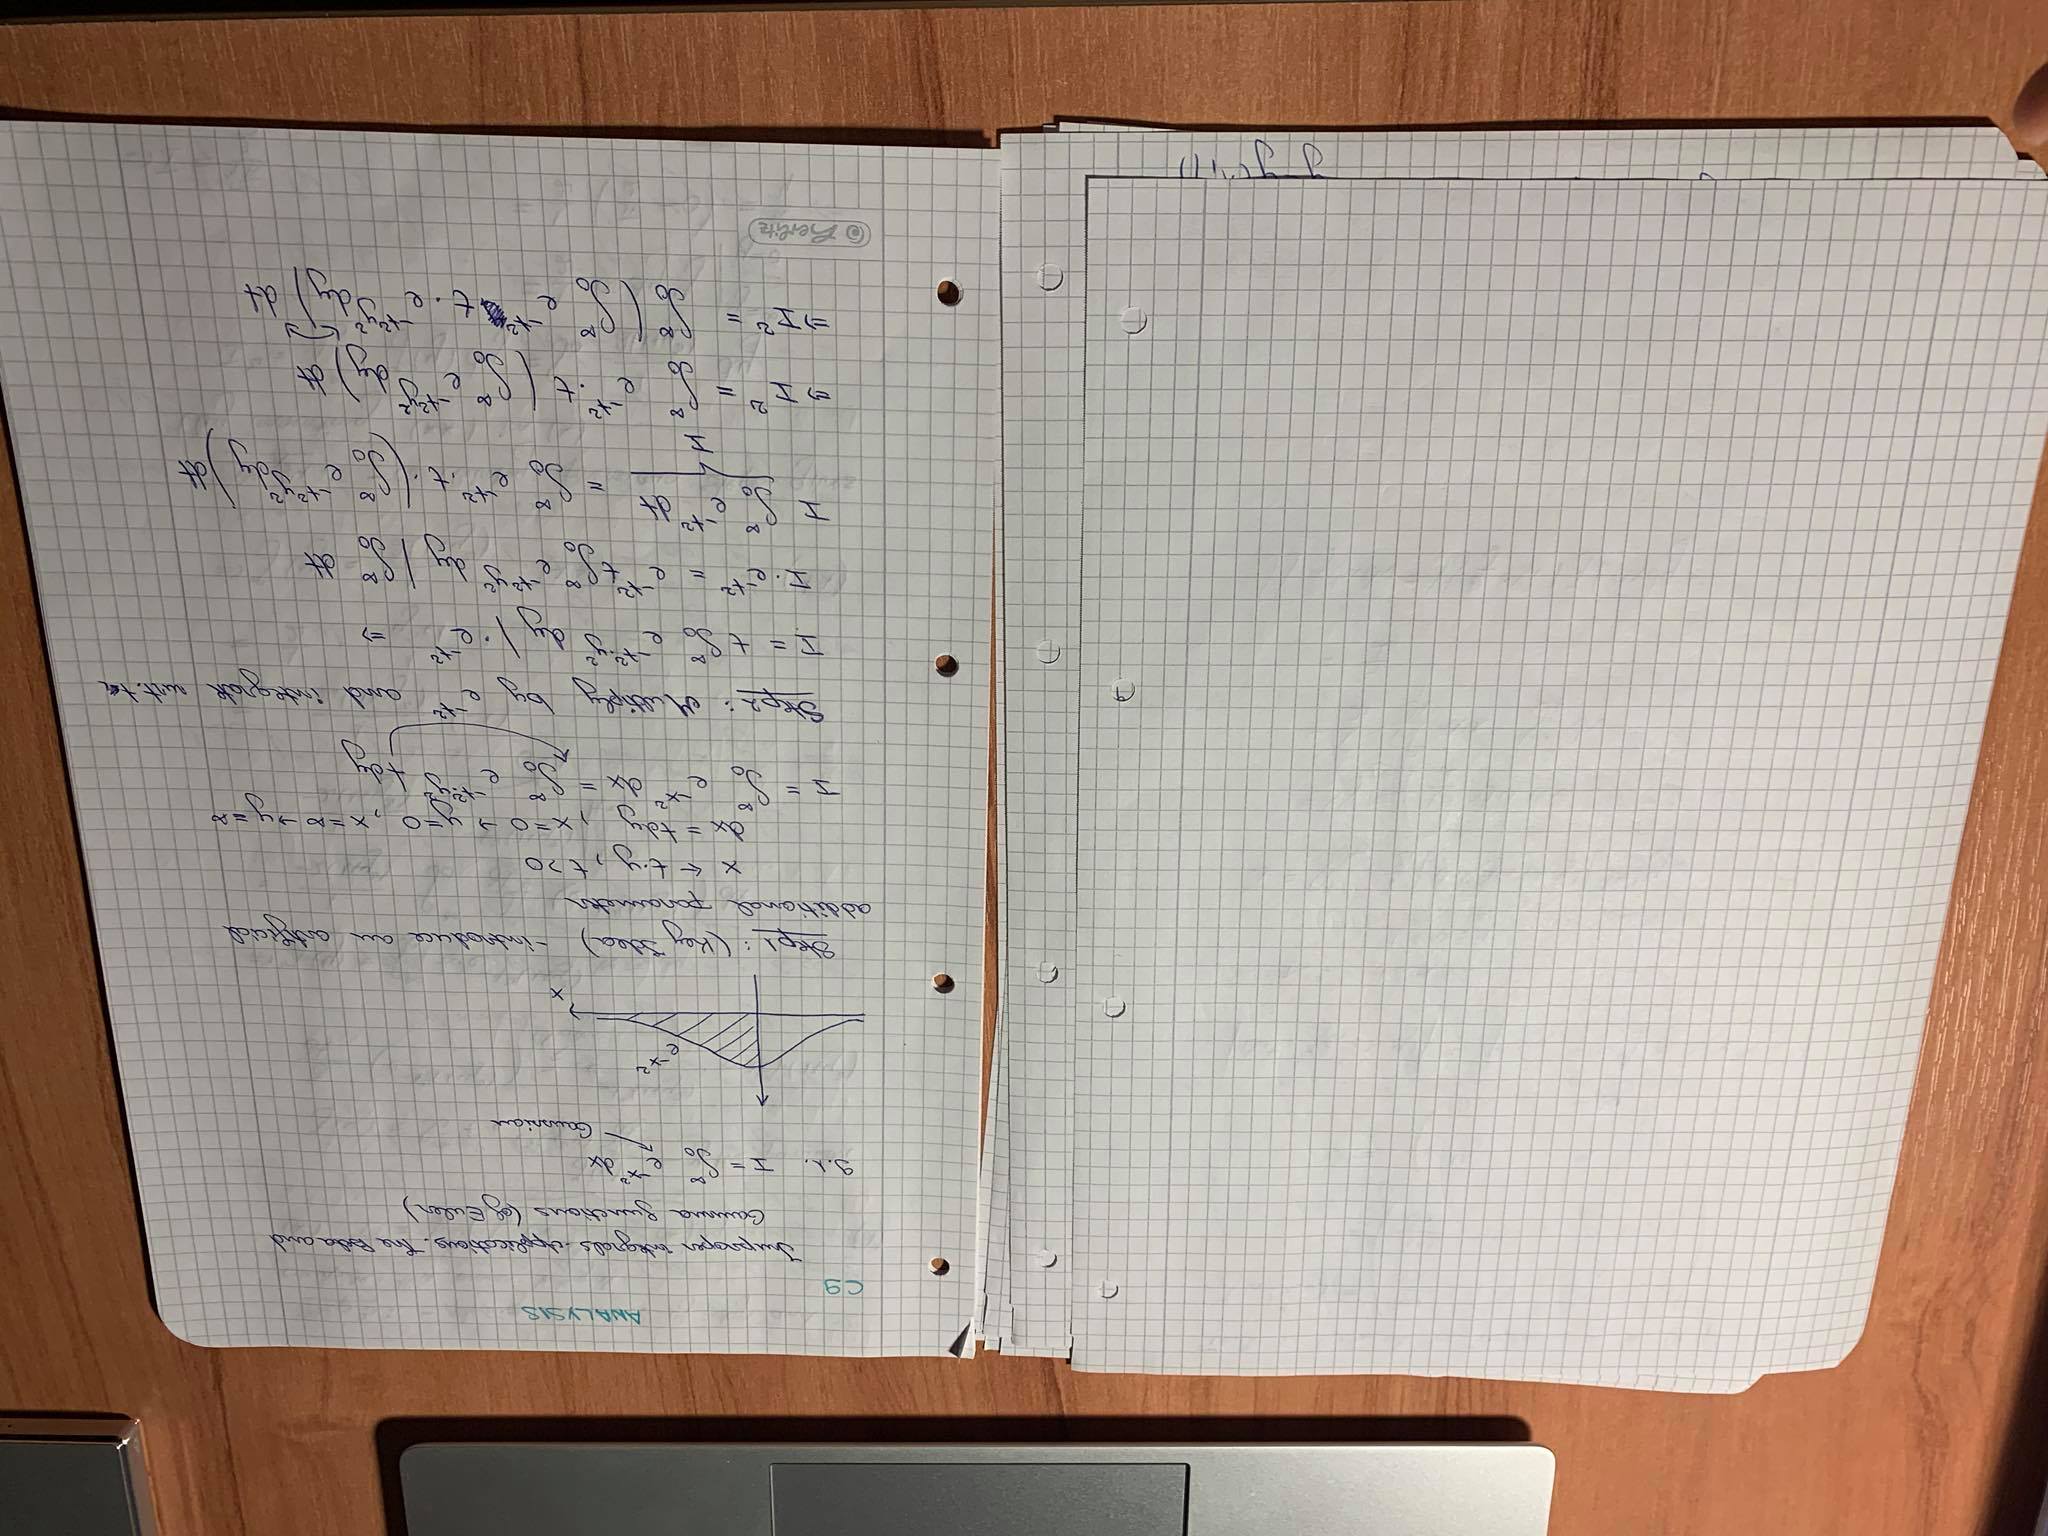 ANALYSIS
C9
Improper integrals. Applications. The Beta and
Gamma functions (of Euler)
9.1. I = ∫₀^∞ e^{-x²} dx
Gaussian
e^{-x²}
x
Step 1: (Key Idea) - introduce an artificial
additional parameter
x ← t·y, t>0
dx = tdy, x=0 → y=0, x=∞ → y=∞
I = ∫₀^∞ e^{-x²} dx = ∫₀^∞ e^{-t²·y²} tdy
Step 2: Multiply by e^{-t²} and integrate wrt. t
I = t ∫₀^∞ e^{-t²·y²} dy | · e^{-t²} ⇒
I · e^{-t²} = e^{-t²} t ∫₀^∞ e^{-t²y²} dy | ∫₀^∞ dt
I ∫₀^∞ e^{-t²} dt = ∫₀^∞ e^{-t²} · t · (∫₀^∞ e^{-t²y²} dy) dt
I
⇒ I² = ∫₀^∞ e^{-t²} · t (∫₀^∞ e^{-t²y²} dy) dt
⇒ I² = ∫₀^∞ (∫₀^∞ e^{-t²} t · e^{-t²y²} dy) dt
herlitz